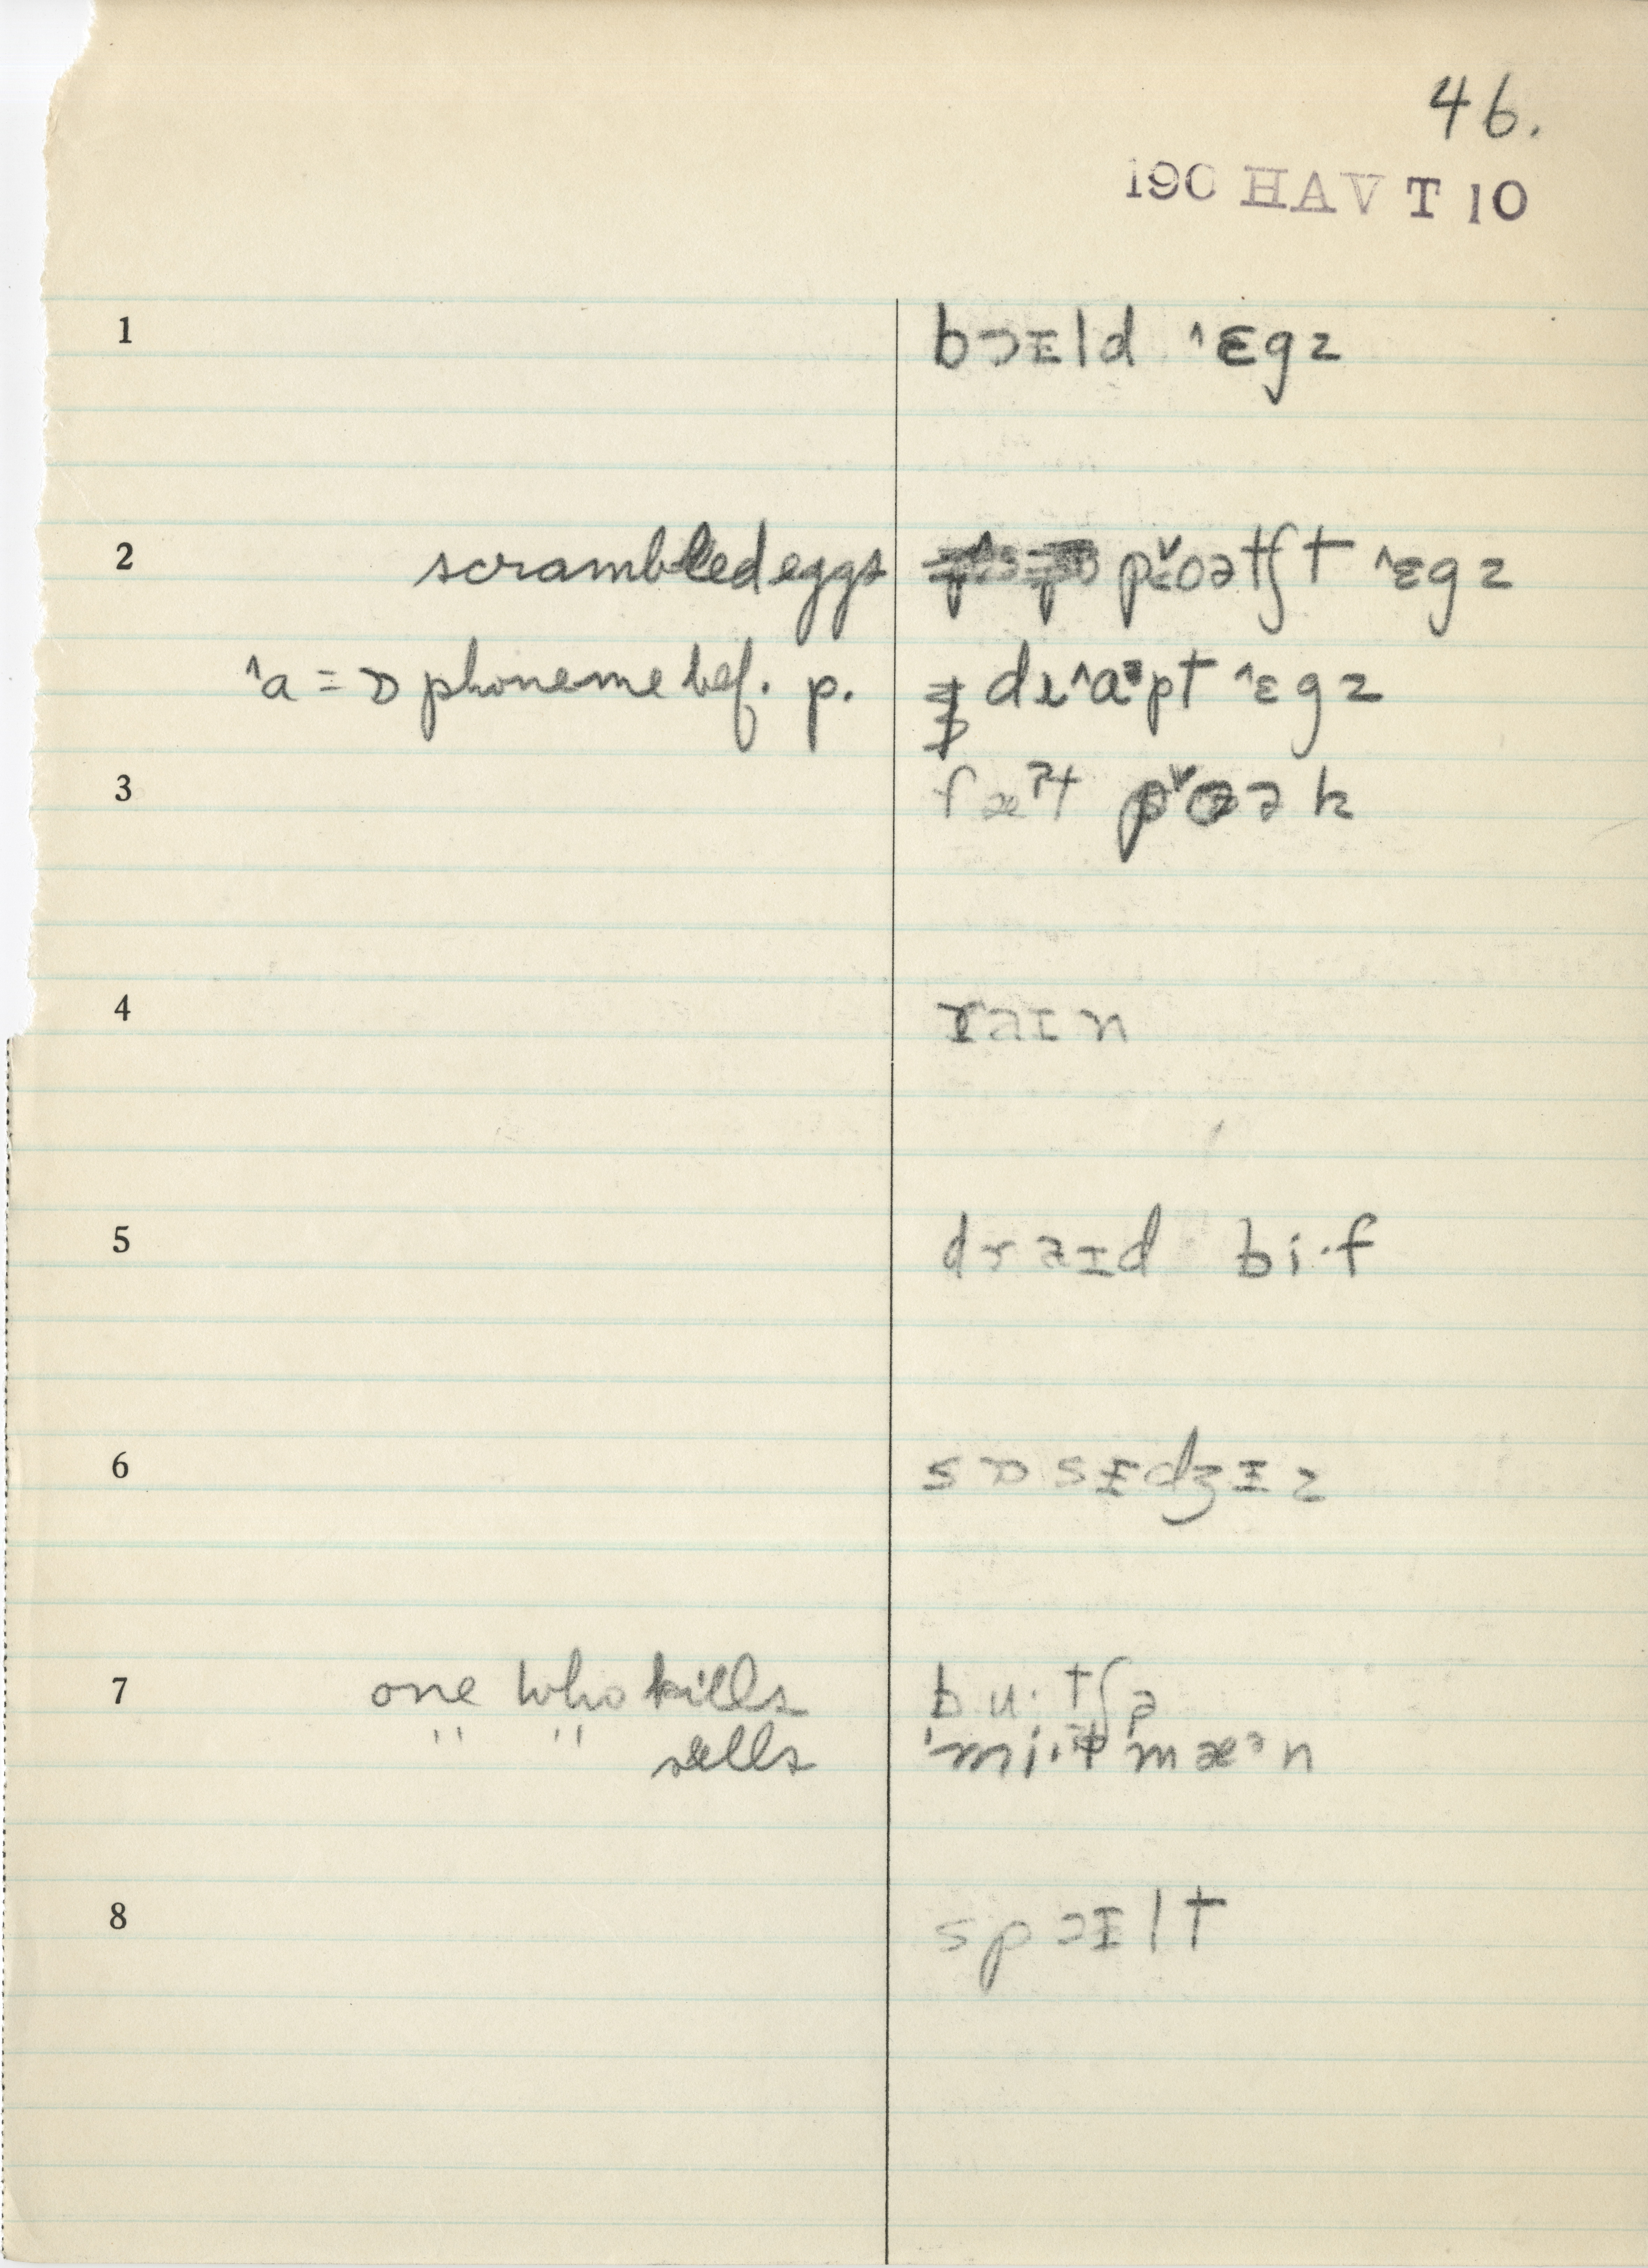 46.
190 HAV T 10
1 bɔɪld ˄ɛgz
2 scrambled eggs p˅oətʃt ˄ɛgz
˄a = ɒ phoneme bef. p. drɪ˄aᵊpt ˄ɛgz
3 p˅oək
4 raɪn
5 draɪd bi·f
6 sɒsɪdʒɪz
7 one who kills bu·tʃə
" " sells 'mi·t mæᵊn
8 spɔɪlt